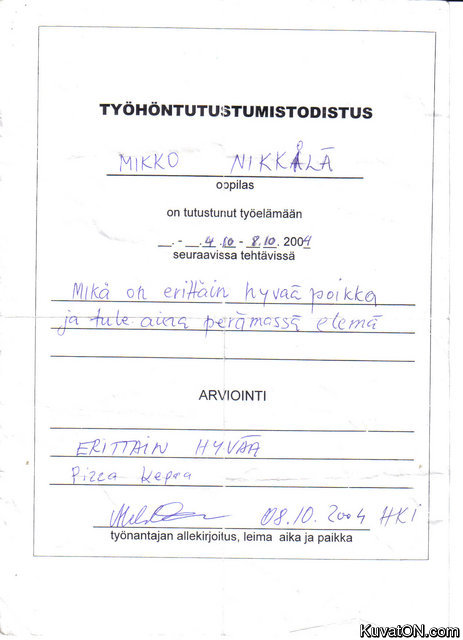 TYÖHÖNTUTUSTUMISTODISTUS
MIKKO NIKKÄLÄ
oppilas
on tutustunut työelämään
__.-__.4.10 - 8.10. 2004
seuraavissa tehtävissä
Mikä on erittäin hyvää poikka
ja tule aina perämassä elemä
ARVIOINTI
ERITTÄIN HYVÄÄ
Pizza
08.10.2004 HKI
työnantajan allekirjoitus, leima aika ja paikka
KuvatON.com